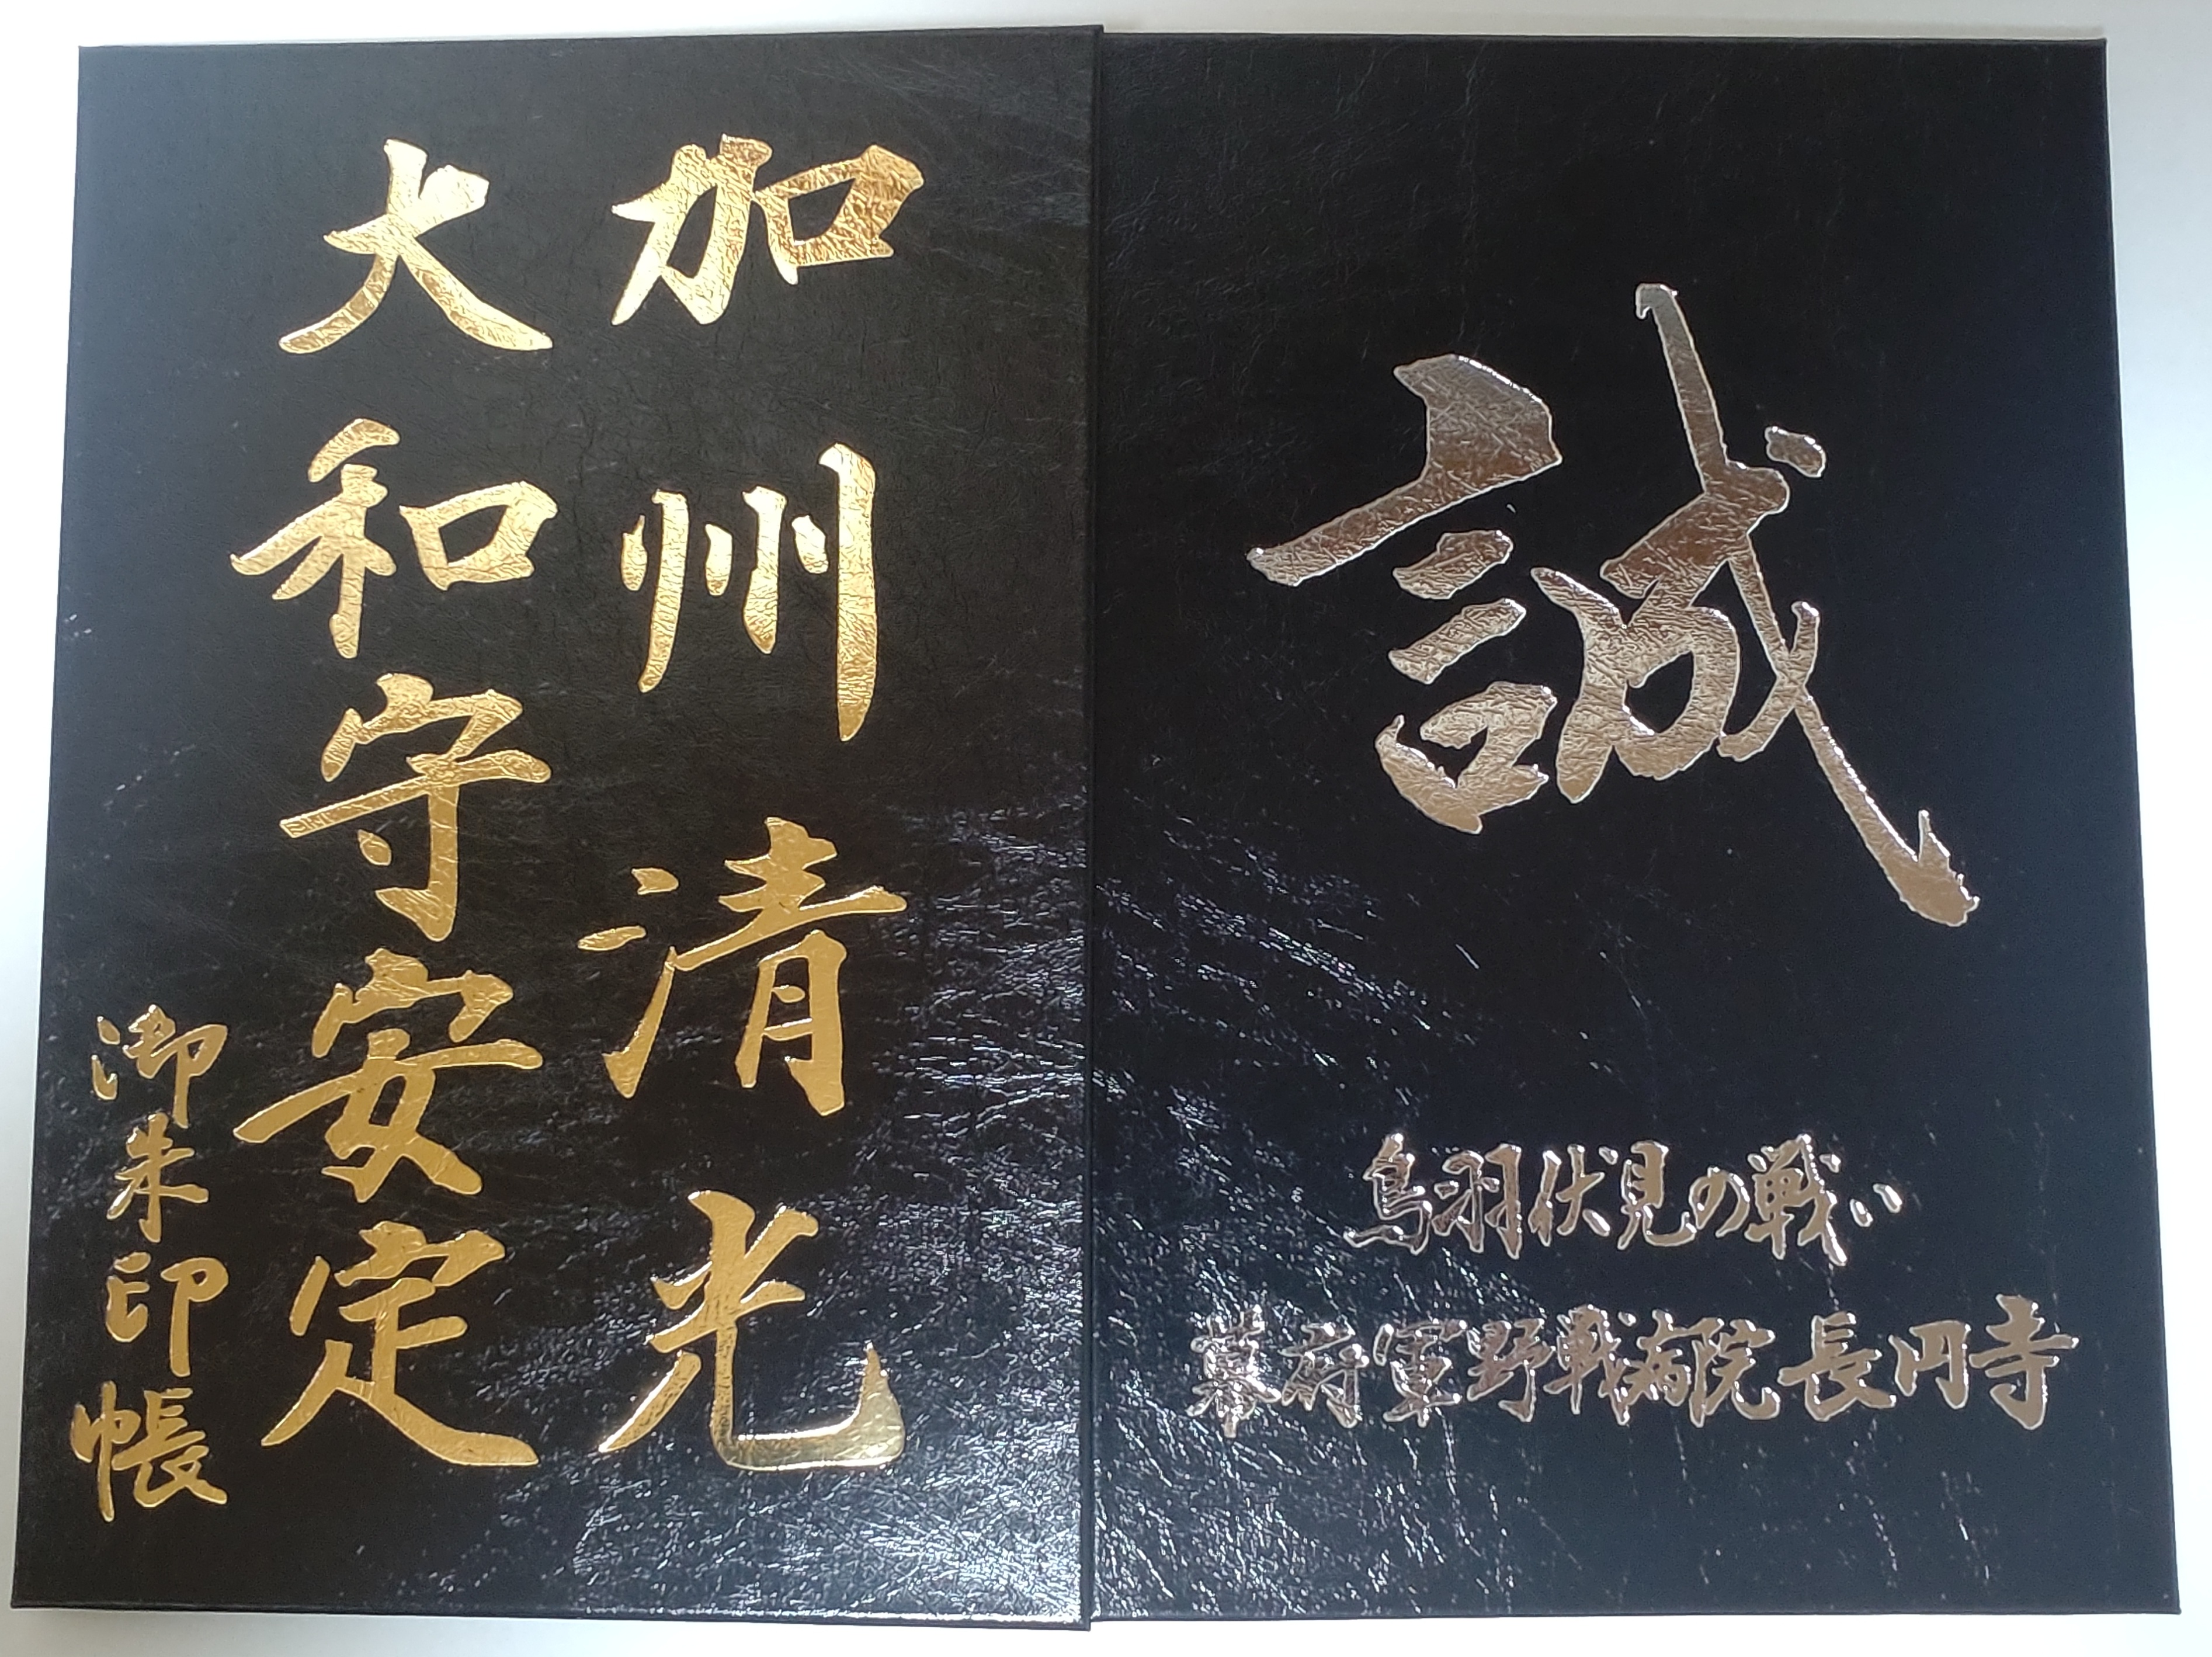 誠
鳥羽伏見の戦い
幕府軍野戦病院長円寺
加州清光
大和守安定
御朱印帳